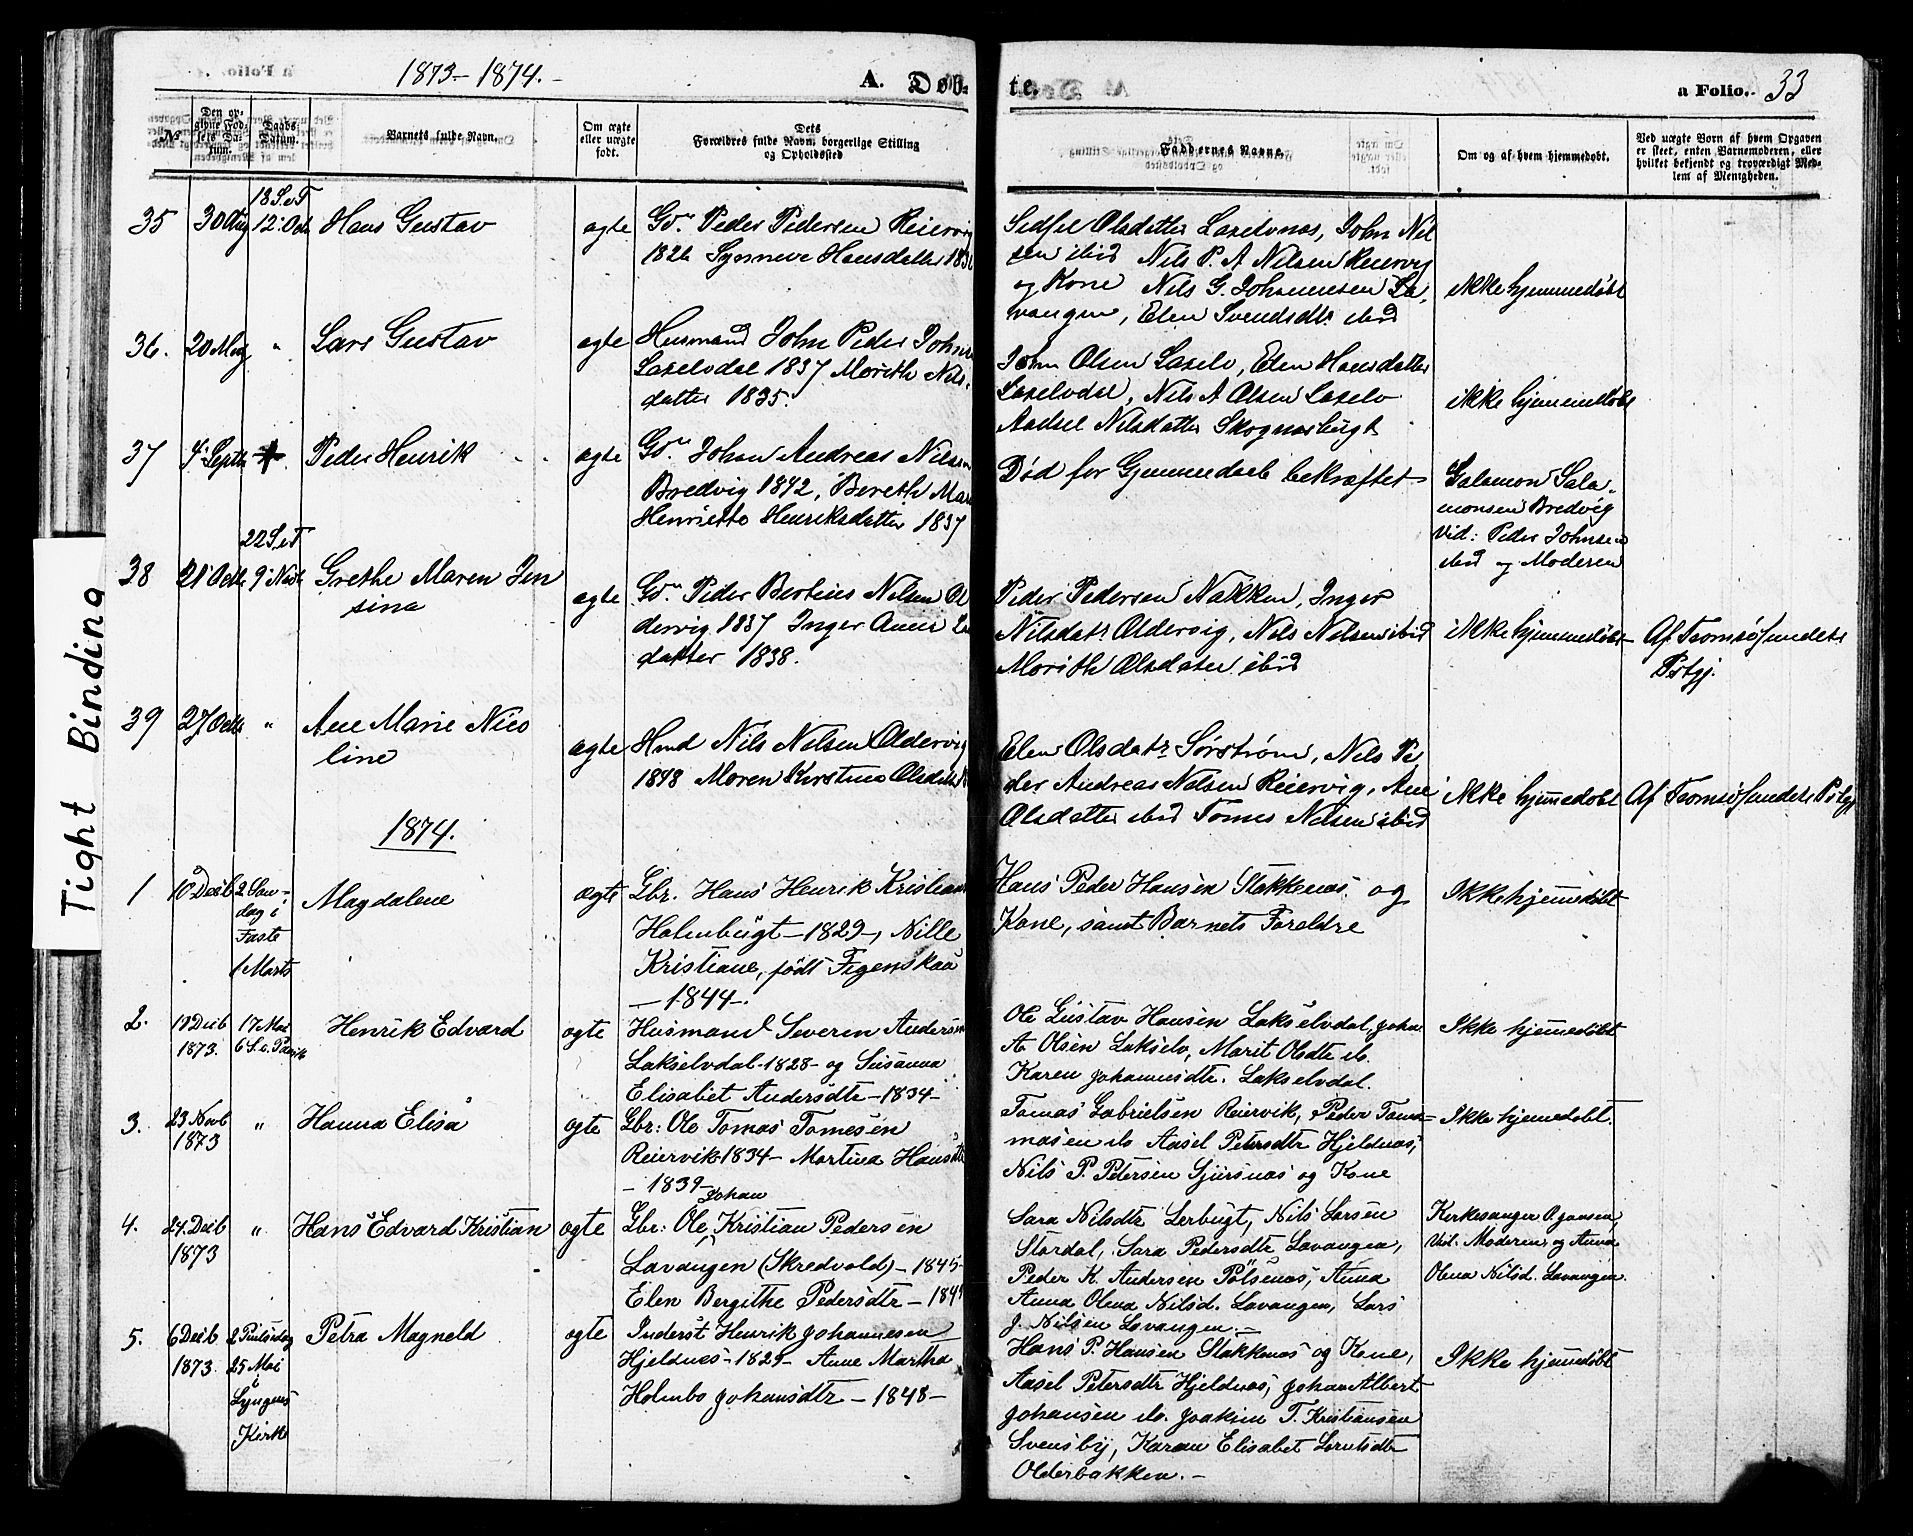 1873-1874.-
A. Døb-
te.
a Folio. 33
Tight Binding
No
Den op-
givne Fød-
sels Da-
tum.
Daabs
Datum.
Barnets fulde Navn.
Om ægte
eller uægte
født.
Dets
Forældres fulde Navn, borgerlige Stilling
og Opholdssted
Faddernes Navne.
Om og af hvem hjemmedøbt.
Ved uægte Børn af hvem Opgaven
er skeet, enten Barnemoderen, eller
hvilket bekjendt og troværdigt Med-
lem af Menigheden.
35
30 Aug
18 S.e.T
12' Oct
Hans Gustav
ægte
Gdr. Peder Pedersen Reiervig
1826 Synneve Hansdatter
Sidsel Olsdatter Laxelvnæs, John Niel
sen ibid Nils P. A Nilsen Reiervig
og Kone Nils G. Johannesen La
vangen, Elen Svendsdtr ibid
ikke hjemmedøbt
36.
20 Aug
"
Lars Gustav
ægte
Husmand John Peder Johns
Laxelvdal 1837 Morith Nils-
datter 1835.
John Olsen Laxelv, Elen Hansdatter
Laxelvdal, Nils A Olsen Laxelv
Aadsel Nilsdatter Skognæsbugt
ikke hjemmedøbt
37
4' Septb
Peder Henrik
ægte
Gdr. Johan Andreas Nilsen
Bredvig 1842, Bereth Mar
Henriette Henriksdatter 1837
Død før Hjemmedaab bekræftet
Salamon Sala-
monsen Bredvig
Vid: Peder Johnsen
ibid og Moderen
38
21' Octb
22 S.e.T
9' Novb
Grethe Maren Jen
sina
ægte
Gdr. Peder Bertius Nilsen Ol
dervig 1837 Inger Anne La
datter 1838.
Peder Pedersen Nakken, Inger
Nilsdatr Oldervig, Nils Nilsen ibid
Morith Olsdatter ibid
ikke hjemmedøbt
Af Tromsøsundets
Pstgj.
39
27 Octb
"
Ane Marie Nico
line
ægte
Hmd Nils Nilsen Oldervig
1848 Maren Kirstine Olsdatter
Elen Olsdatr Sørstrøm, Nils Pe
der Andreas Nilsen Reiervig, Ane
Olsdatter ibid Tomes Nilsen ibid
ikke hjemmedøbt
Af Tromsøsundets Pstgj
1874.
1
10 Decb
2 Søn-
dag i
Faste
1 Marts
Magdalene
ægte
Gbr. Hans Henrik Kristians
Holmbugt - 1829 -, Nille
Kristiane, født Figenskau
- 1844 -.
Hans Peder Hansen Stokkenæs og
Kone, samt Barnets Forældre
Ikke hjemmedøbt
2.
10 Decb
1873.
17 Mai
6 S.e. Paask
Henrik Edvard
ægte
Husmand Severin Anders
Lakselvdal - 1828 - og Susanna
Elisabet Andersdtr - 1834 -
Ole Gustav Hansen Lakselvdal, Johan
A. Olsen Lakselv, Marit Olsdtr ib.
Karen Johannesdtr. Lakselvdal.
Ikke hjemmedøbt
3.
23 Novb
1873
"
Hanna Elisa
ægte
Gbr: Ole Tomas Tomesen
Reiervik 1834 - Martina Hansdtr
- 1839 -
Tomas Gabrielsen Reiervik, Peder Tom-
masen ib Aasel Petersdtr Hjeldnæs,
Nils P. Petersen Sjursnæs og Kone
Ikke hjemmedøbt.
4.
24. Decb
1873
"
Hans Edvard Kristian
ægte
Johan
Gbr: Ole Kristian Pedersen
Lavangen (Skredvold) - 1845 -
Elen Bergithe Pedersdtr -
Sara Nilsdtr Lerbugt, Nils Larsen
Stordal, Sara Pedersdtr Lavangen,
Peder K. Andersen Pølsenæs, Anna
Anna Olena Nilsd. Lavangen, Lars
J. Nilsen Lavangen. -
Kirkesanger O. Jansen,
Vid. Moderen og Anna
Olena Nilsd. Lavangen
5.
6 Decb
1873
2 Pintsedag
25 Mai
i
Lyngens
Kirke
Petra Magneld
ægte
Inderst Henrik Johannesen
Hjeldnes - 1829 - Anne Martha
Holmbo Johansdtr - 1848 -
Hans P. Hansen Stokkenæs og Kone,
Aasel Petersdtr Hjeldnæs, Johan Albert
Johansen ib. Joakim T. Kristiansen
Svensby, Karen Elisabet Lorntsdtr
Olderbakken. -
Ikke hjemmedøbt